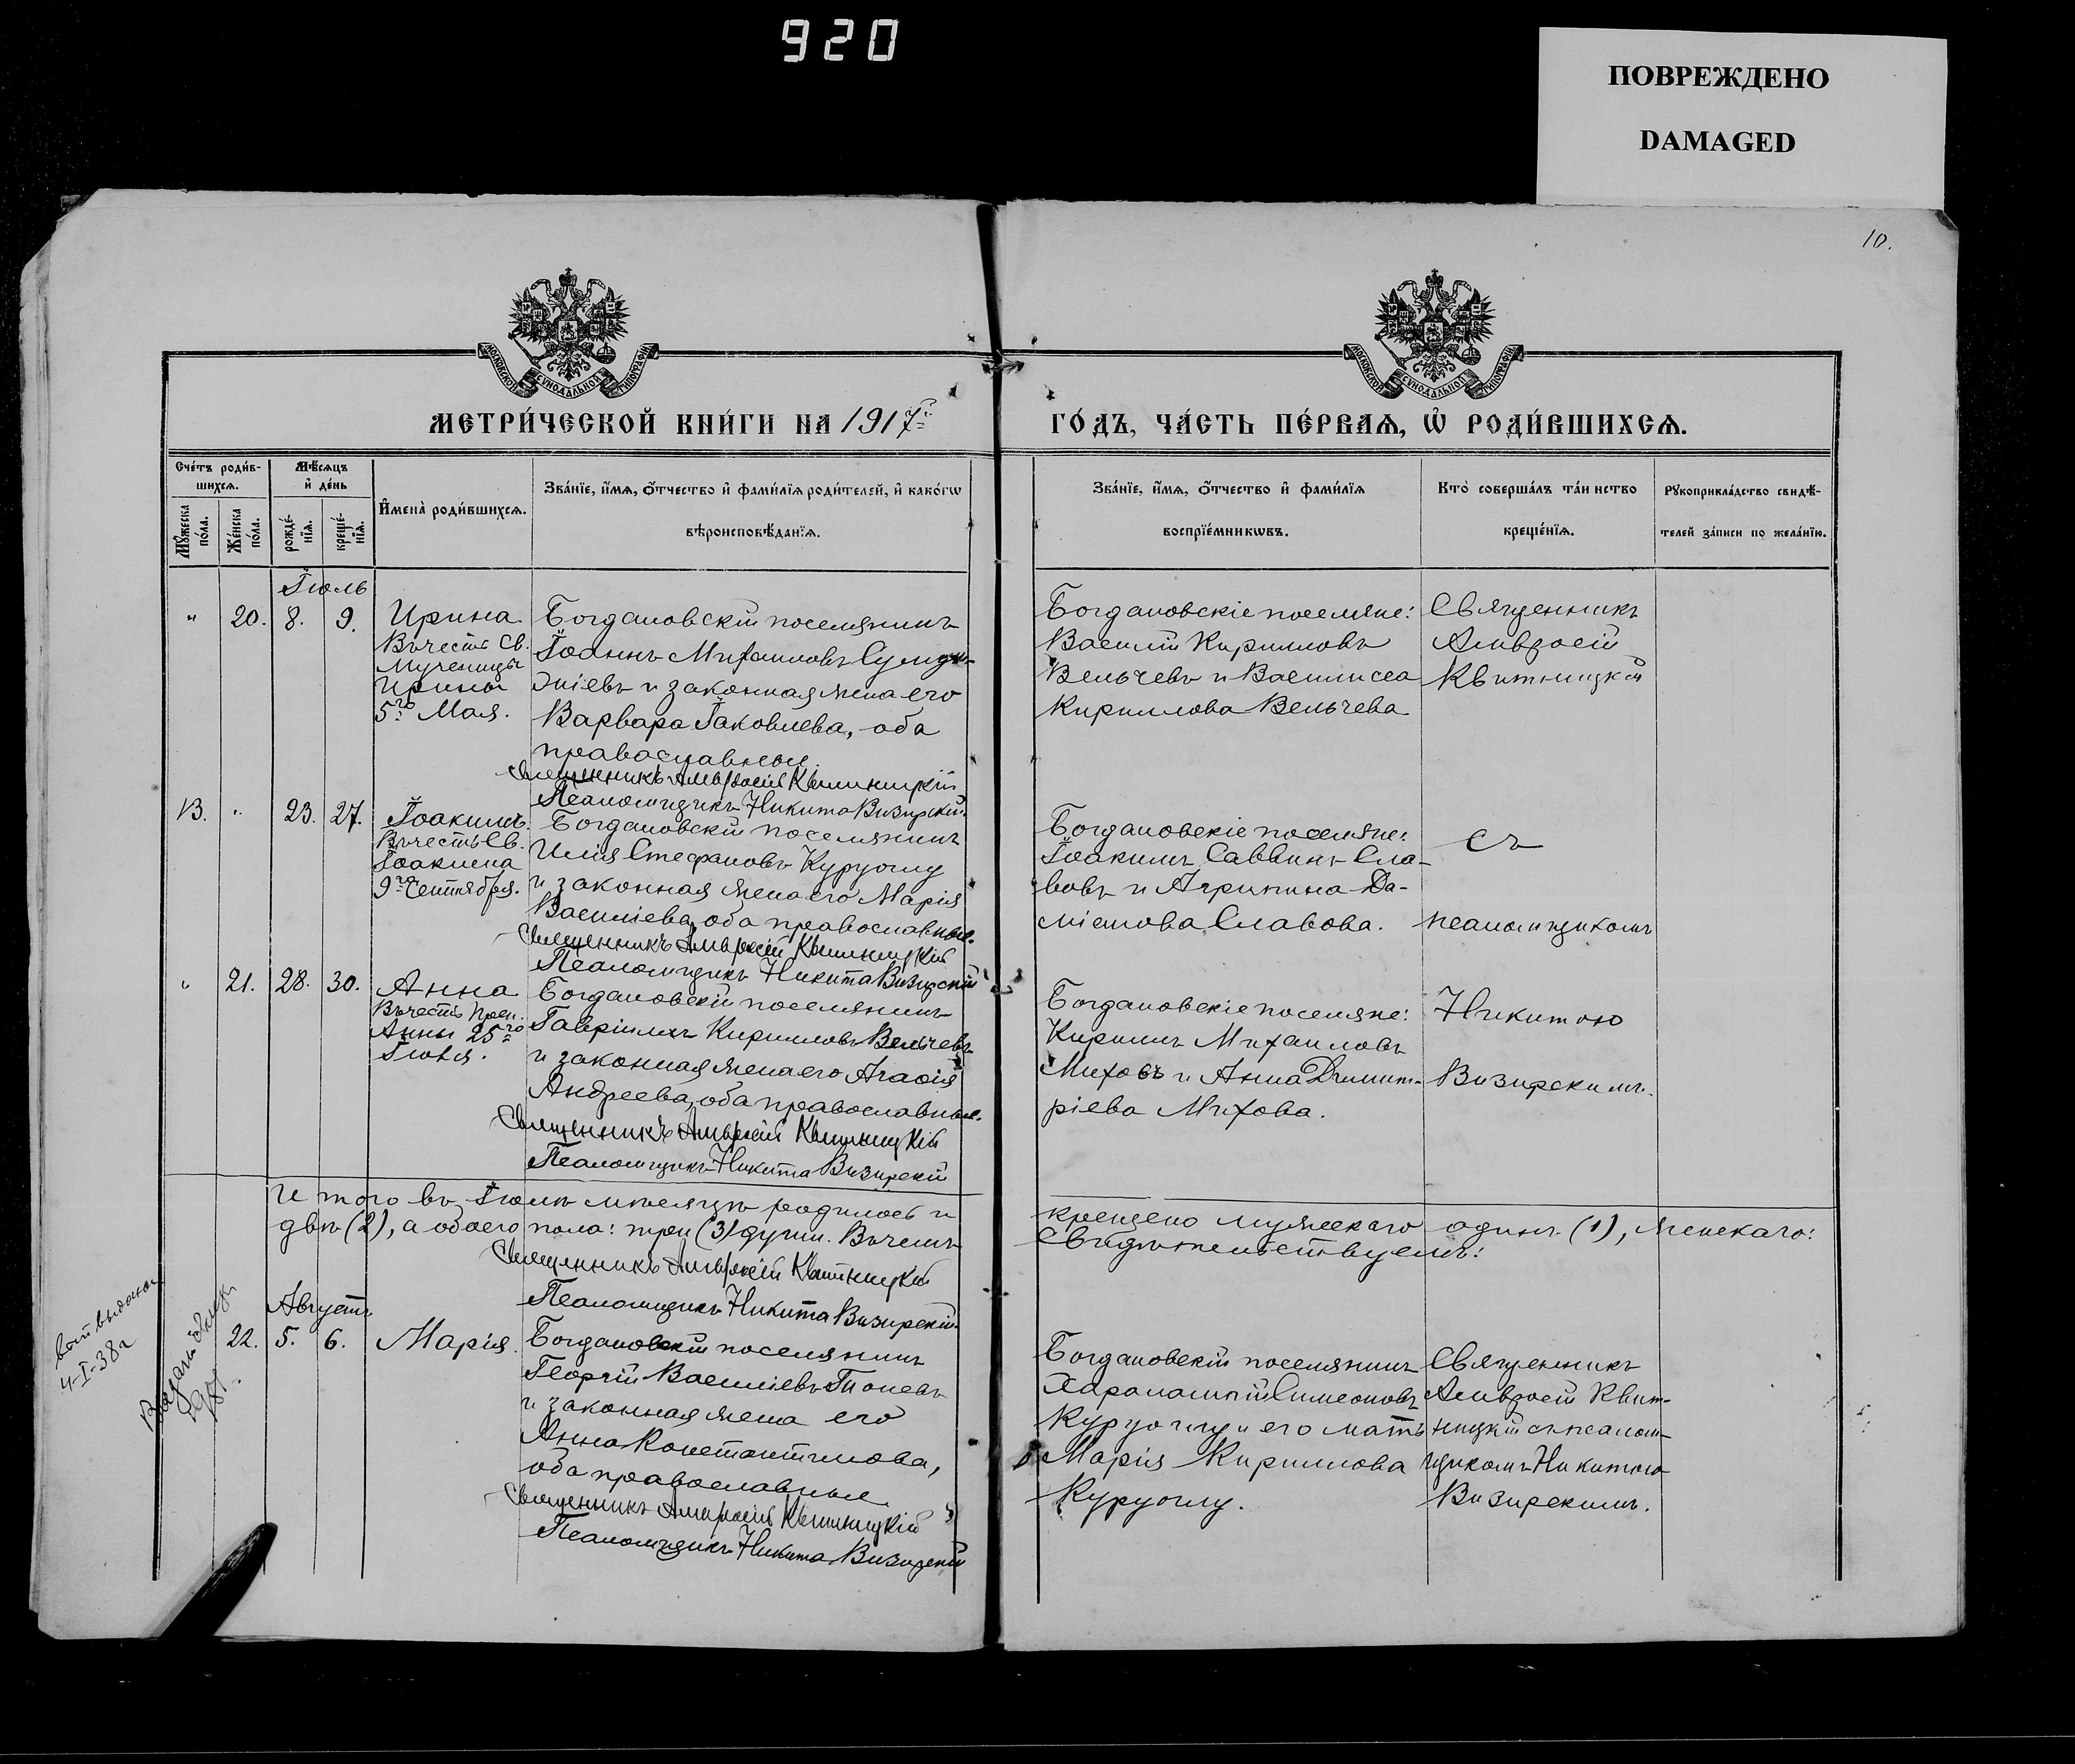 920
ПОВРЕЖДЕНО
DAMAGED
10.
МОСКОВСКОЙ СѴНОДАЛЬНОЙ ТИПОГРАФІИ
МОСКОВСКОЙ СѴНОДАЛЬНОЙ ТИПОГРАФІИ
МЕТРИ́ЧЕСКОЙ КНИ́ГИ НА 1917 г.
ГО́ДЪ, ЧА́СТЬ ПЕ́РВАѦ, Ѡ҆ РОДИ́ВШИХСѦ.
Сче́тъ роди́в-
шихсѧ.
Мѣ́сѧцъ
и҆ де́нь
И҆мена̀ роди́вшихсѧ.
Зва́нїе, и҆́мѧ, ѻ҆́тчество и҆ фами́лїѧ роди́телей, и҆ како́гѡ
вѣроисповѣ́данїѧ.
Мꙋ́жеска
по́ла.
Же́нска
по́ла.
рожде́-
нїѧ.
креще́-
нїѧ.
Зва́нїе, и҆́мѧ, ѻ҆́тчество и҆ фами́лїѧ
воспрїе́мникѡвъ.
Кто̀ соверша́лъ та́инство
креще́нїѧ.
Рꙋкоприкла́дство свидѣ́-
телей за́писи по жела́нїю.
Іюль
" 20. 8. 9. Ирина
Въ честь Св.
Мученицы
Ирины
5го Мая.
Богдановскій поселянинъ
Іоаннъ Михаиловъ
и законная жена его
Варвара Іаковлева, оба
православные.
Священникъ Амвросій Квитницкій
Псаломщикъ Никита Визирскій
Богдановскіе поселяне:
Василій Кирилловъ
Вельчевъ и Василисса
Кириллова Вельчева
Священникъ
Амвросій
Квитницкій
13. " 23. 27. Іоакимъ.
Въ честь Св.
Іоакима
9го Сентября.
Богдановскій поселянинъ
Илія Стефановъ Куруоглу
и законная жена его Марія
Василіева, оба православные.
Священникъ Амвросій Квитницкій
Псаломщикъ Никита Визирскій
Богдановскіе поселяне:
Іоакимъ Саввинъ Сла-
вовъ и Агрипина Да-
міанова Славова.
съ
псаломщикомъ
" 21. 28. 30. Анна
Въ честь Прав.
Анны 25го
Іюля.
Богдановскій поселянинъ
Гавріилъ Кирилловъ Вельчевъ
и законная жена его Агаѳія
Андреева, оба православные.
Священникъ Амвросій Квитницкій
Псаломщикъ Никита Визирскій
Богдановскіе поселяне:
Кириллъ Михаиловъ
Миховъ и Анна Димит-
ріева Михова.
Никитою
Визирскимъ.
Итого въ Іюлѣ мѣсяцѣ родилось и
крещено мужескаго одинъ (1), женскаго:
двѣ (2), а обоего пола: три (3) души. Въ чемъ
Свидѣтельствуемъ:
Священникъ Амвросій Квитницкій
Псаломщикъ Никита Визирскій
4-I-38 г
Августъ
22. 5. 6. Марія.
Богдановскій поселянинъ
Георгій Василіевъ
и законная жена его
Анна Константинова,
оба православные
Священникъ Амвросій Квитницкій
Псаломщикъ Никита Визирскій
Богдановскій поселянинъ
Харалампій Симеоновъ
Куруоглу и его мать
Марія Кириллова
Куруоглу.
Священникъ
Амвросій Квит-
ницкій съ псалом-
щикомъ Никитою
Визирскимъ.